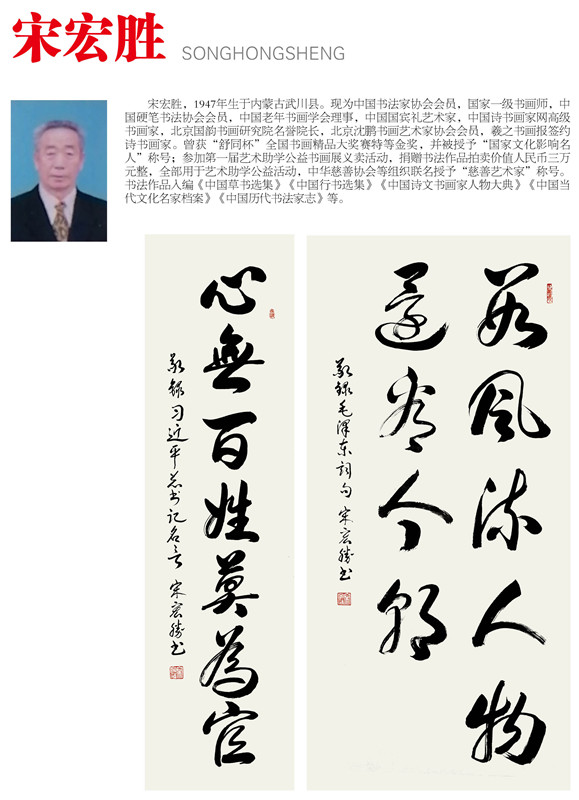 宋宏胜 SONGHONGSHENG
宋宏胜，1947年生于内蒙古武川县。现为中国书法家协会会员，国家一级书画师，中
国硬笔书法协会会员，中国老年书画学会理事，中国国宾礼艺术家，中国诗书画家网高级
书画家，北京国韵书画研究院名誉院长，北京沈鹏书画艺术家协会会员，羲之书画报签约
诗书画家。曾获“舒同杯”全国书画精品大奖赛特等金奖，并被授予“国家文化影响名
人”称号；参加第一届艺术助学公益书画展义卖活动，捐赠书法作品拍卖价值人民币三万
元整，全部用于艺术助学公益活动，中华慈善协会等组织联名授予“慈善艺术家”称号。
书法作品入编《中国草书选集》《中国行书选集》《中国诗文书画家人物大典》《中国当
代文化名家档案》《中国历代书法家志》等。
心無百姓莫為官
敬録习近平总书记名言 宋宏胜书
数风流人物
还看今朝
敬録毛泽东词句 宋宏胜书